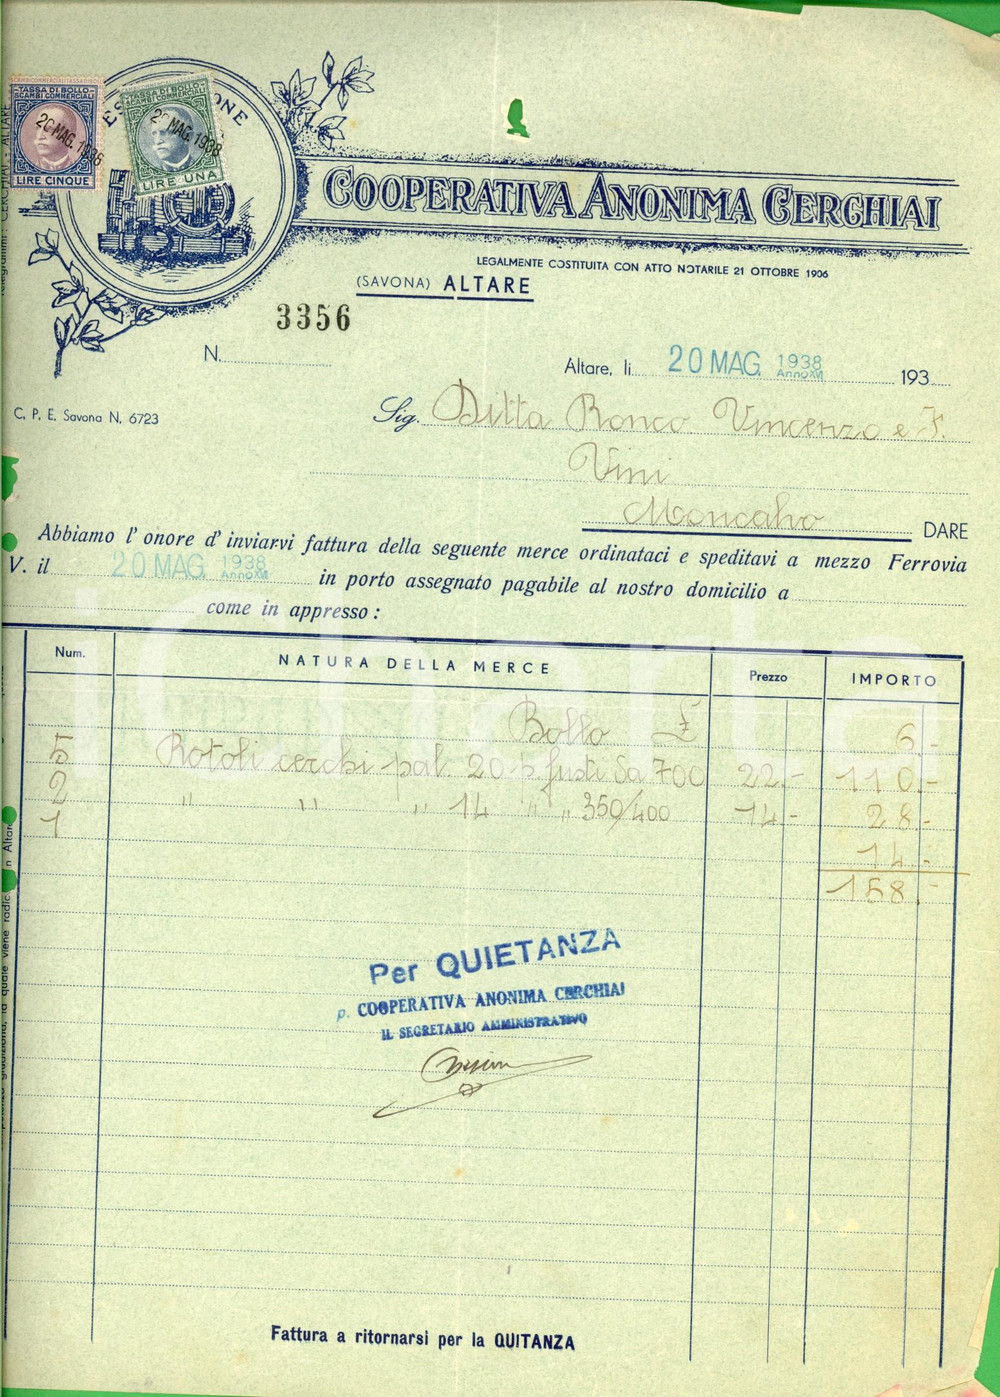 TASSA DI BOLLO
SCAMBI COMMERCIALI
20 MAG. 1938
LIRE CINQUE
TASSA DI BOLLO
SCAMBI COMMERCIALI
20 MAG. 1938
LIRE UNA
COOPERATIVA ANONIMA CERCHIAI
LEGALMENTE COSTITUITA CON ATTO NOTARILE 21 OTTOBRE 1906
(SAVONA) ALTARE
3356
N.
Altare, li 20 MAG. 1938 Anno XVI 193
C. P. E. Savona N. 6723
Sig. Ditta Ronco Vincenzo e F.
Vini
Moncalvo DARE
Abbiamo l'onore d'inviarvi fattura della seguente merce ordinataci e speditavi a mezzo Ferrovia
V. il 20 MAG. 1938 Anno XVI in porto assegnato pagabile al nostro domicilio a
come in appresso:
Num. NATURA DELLA MERCE Prezzo IMPORTO
Bollo £ 6 -
5 Rotoli cerchi pal. 20 p. fusti da 700 22 - 110 -
2 " " " 14 " " 350/400 14 - 28 -
1 14 -
158 -
Per QUIETANZA
p. COOPERATIVA ANONIMA CERCHIAI
IL SEGRETARIO AMMINISTRATIVO
Fattura a ritornarsi per la QUITANZA